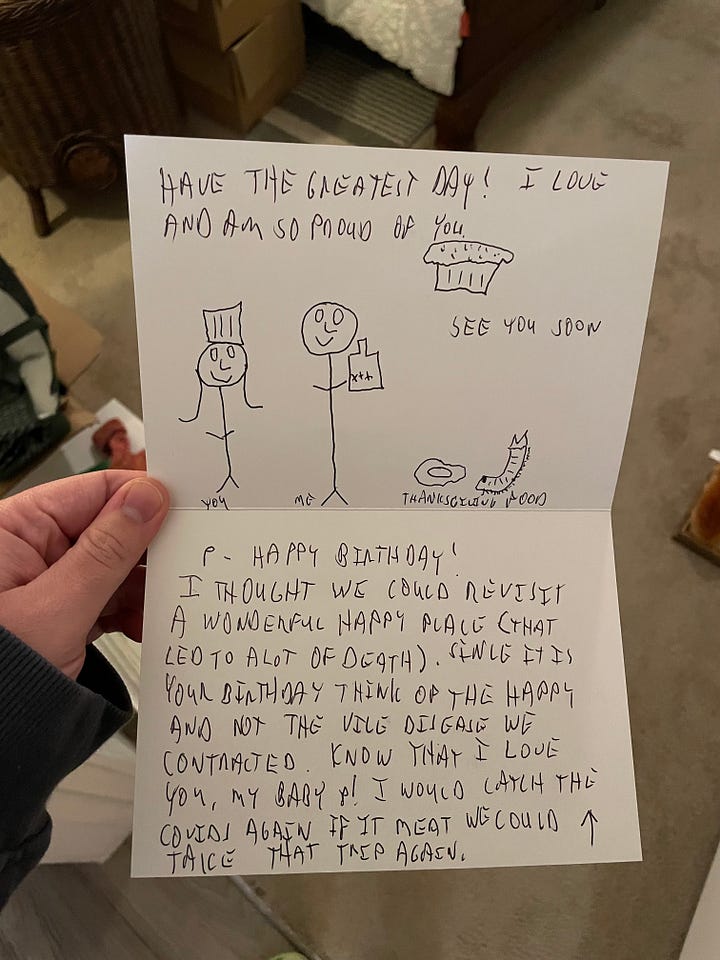 HAVE THE GREATEST DAY! I LOVE
AND AM SO PROUD OF YOU.
SEE YOU SOON
x++
YOU
ME
THANKSGIVING FOOD
P - HAPPY BIRTHDAY!
I THOUGHT WE COULD REVISIT
A WONDERFUL HAPPY PLACE (THAT
LED TO A LOT OF DEATH). SINCE IT IS
YOUR BIRTHDAY THINK OF THE HAPPY
AND NOT THE VILE DISEASE WE
CONTRACTED. KNOW THAT I LOVE
YOU, MY BABY P! I WOULD CATCH THE
COVIDS AGAIN IF IT MEAT WE COULD ↑
TAKE THAT TRIP AGAIN.